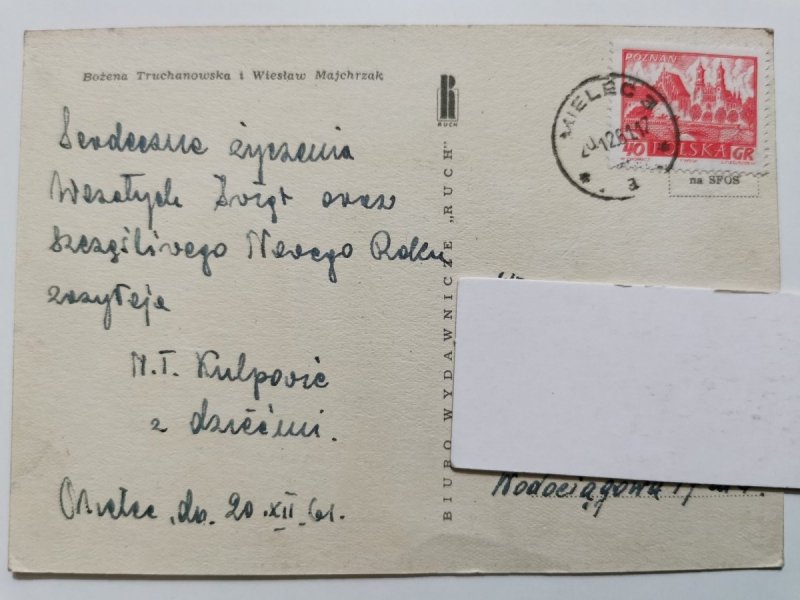 Bożena Truchanowska i Wiesław Majchrzak
Serdeczne życzenia
Wesołych Świąt oraz
Szczęśliwego Nowego Roku
zasyłają
z dziećmi.
Mielec, dn. 20.XII.61.
RUCH
BIURO WYDAWNICZE „RUCH"
POZNAŃ
40 POLSKA GR
MIELEC 3
na SFOS
Wodociągowa